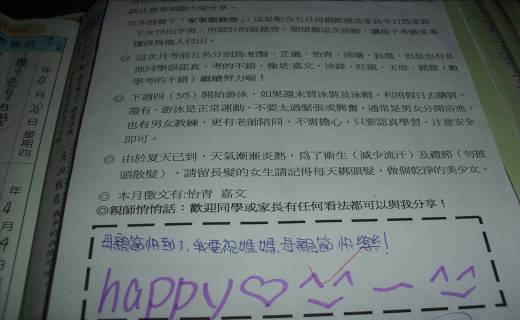 ◎本週發下「家事服務券」,這是配合五月母親節感念家長平日為家庭、
子女付出辛勞,所設計的服務券,期望藉這次活動,讓孩子多做家事,
懂得為他人付出。
◎ 這次月考前五名分別為:柏賢、芷儀、怡青、沛珊、鈺凱,但是也有其
他同學很認真,考的不錯,像是:嘉文、沛錞、旺龍、玉瑄、銘滄(數
學考的不錯)繼續努力喔!
◎ 下週四(5/5)開始游泳,如果還未買泳裝及泳帽,利用假日去購買。
還有,游泳是正常運動,不要太過緊張或興奮,通常是男女分開浴池,
也有男女教練,更有老師陪同,不需擔心,只要認真學習、注意安全
即可。
◎ 由於夏天已到,天氣漸漸炎熱,為了衛生(減少流汗)及禮節(勿披
頭散髮),請留長髮的女生請記得每天綁頭髮,做個乾淨的美少女。
◎ 本月徵文有:怡青 嘉文
◎親師悄悄話:歡迎同學或家長有任何看法都可以與我分享!
母親節快到了,我要祝媽媽母親節快樂!
happy♡^^ー^^
年4月28日星期四